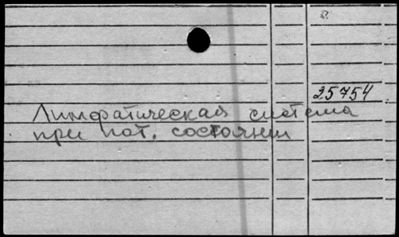 25754
Лимфатическая система
при пат. состоянии